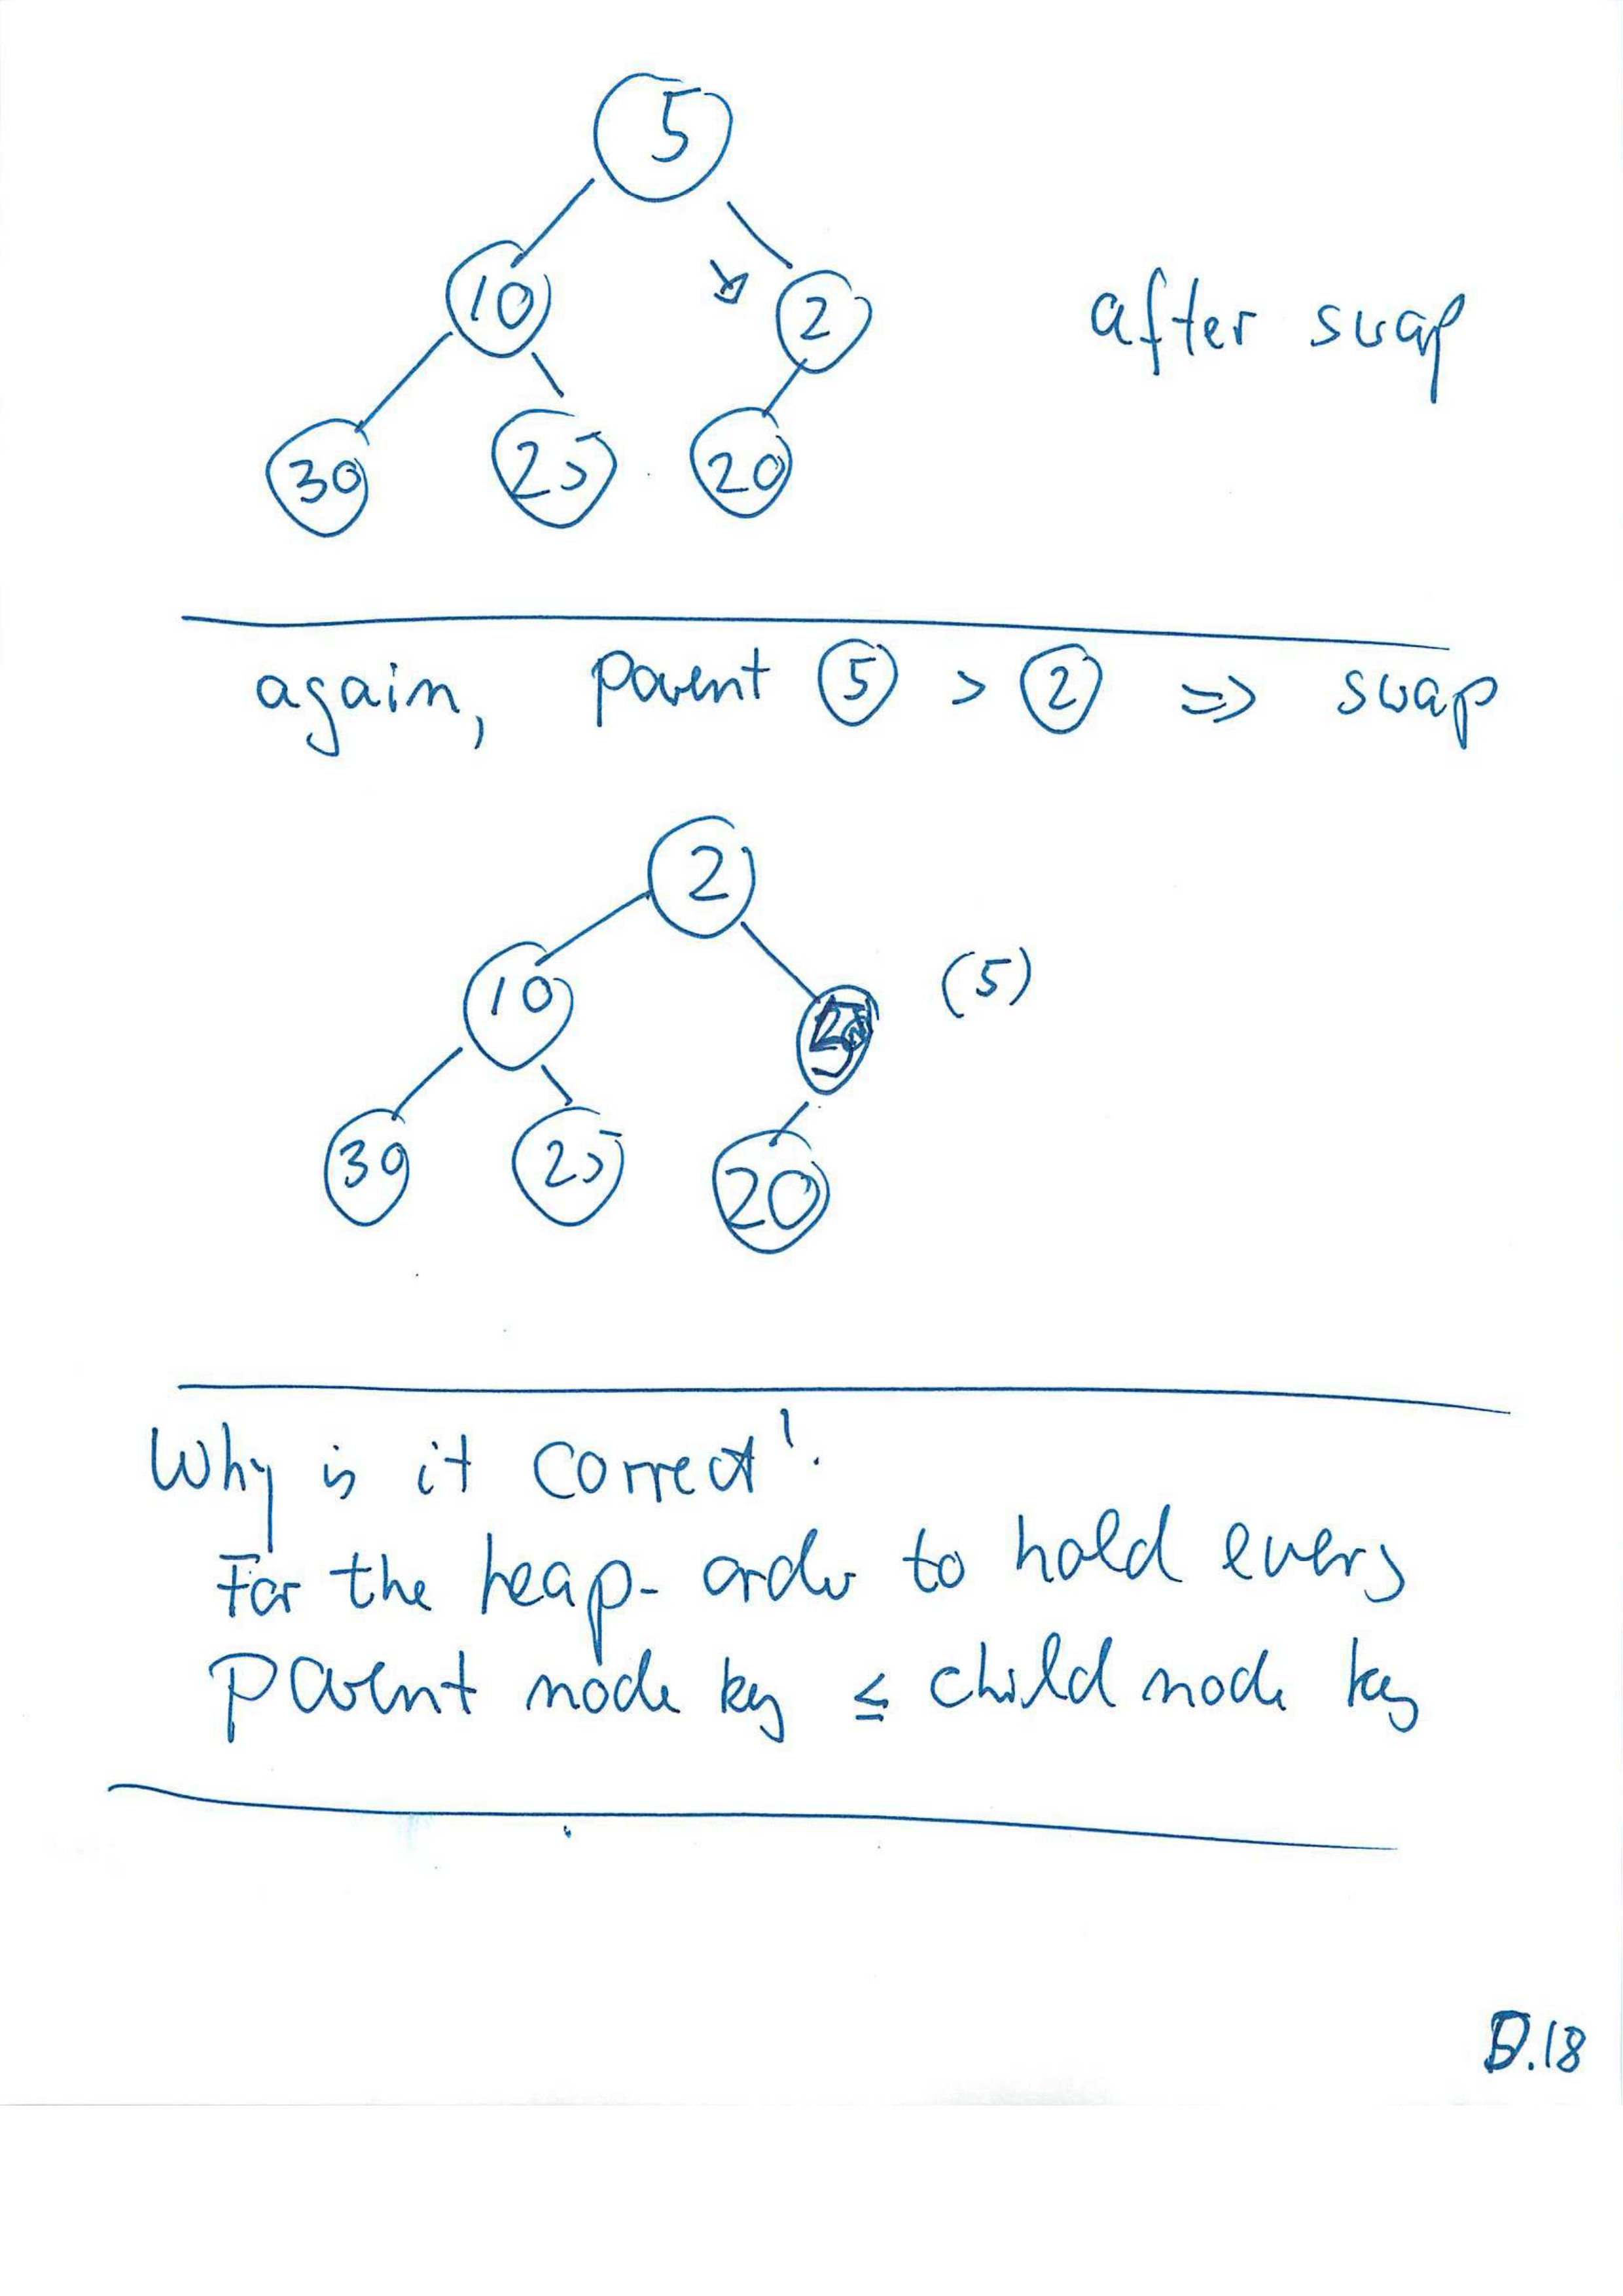 5
10 2 after swap
30 25 20
again, parent 5 > 2 => swap
2
10 (5)
30 25 20
Why is it correct?
For the heap-order to hold every
parent node key ≤ child node key
D.18